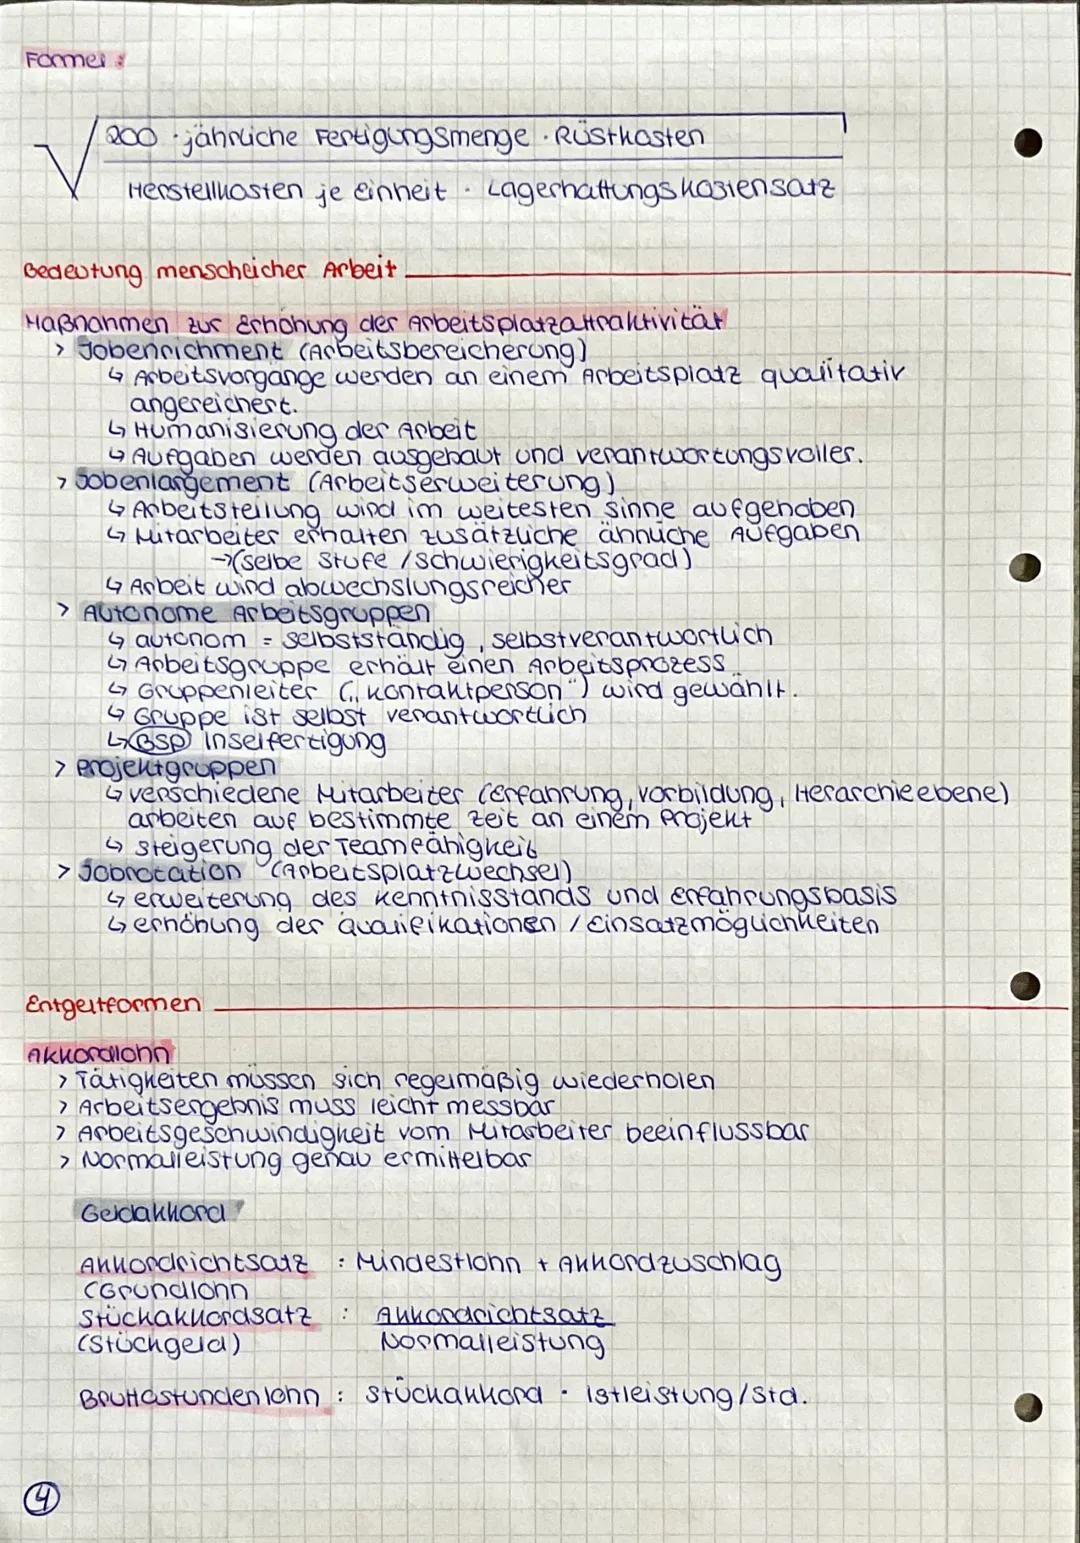 Formel:
200 · jährliche Fertigungsmenge · Rüstkosten
Herstellkosten je Einheit · Lagerhaltungskostensatz
Bedeutung menschlicher Arbeit
Maßnahmen zur Erhöhung der Arbeitsplatzattraktivität
> Jobenrichment (Arbeitsbereicherung)
↳ Arbeitsvorgänge werden an einem Arbeitsplatz qualitativ
angereichert.
↳ Humanisierung der Arbeit
↳ Aufgaben werden ausgebaut und verantwortungsvoller.
> Jobenlargement (Arbeitserweiterung)
↳ Arbeitsteilung wird im weitesten sinne aufgehoben
↳ Mitarbeiter erhalten zusätzliche ähnliche Aufgaben
→ (selbe Stufe / Schwierigkeitsgrad)
↳ Arbeit wird abwechslungsreicher
> Autonome Arbeitsgruppen
↳ autonom = selbstständig, selbstverantwortlich
↳ Arbeitsgruppe erhält einen Arbeitsprozess
↳ Gruppenleiter („Kontaktperson") wird gewählt.
↳ Gruppe ist selbst verantwortlich
↳ BSP Inselfertigung
> Projektgruppen
↳ verschiedene Mitarbeiter (Erfahrung, Vorbildung, Herarchieebene)
arbeiten auf bestimmte Zeit an einem Projekt
↳ steigerung der Teamfähigkeit
> Jobrotation (Arbeitsplatzwechsel)
↳ erweiterung des Kenntnisstands und erfahrungsbasis
↳ erhöhung der Qualifikationen / Einsatzmöglichkeiten
Entgeltformen
Akkordlohn
> Tätigkeiten müssen sich regelmäßig wiederholen
> Arbeitsergebnis muss leicht messbar
> Arbeitsgeschwindigkeit vom Mitarbeiter beeinflussbar
> Normalleistung genau ermittelbar
Geldakkord
Akkordrichtsatz : Mindestlohn + Akkordzuschlag
(Grundlohn
Stückakkordsatz : Akkordrichtsatz
(Stückgeld) Normalleistung
Bruttostundenlohn : Stückakkord · Istleistung/Std.
4